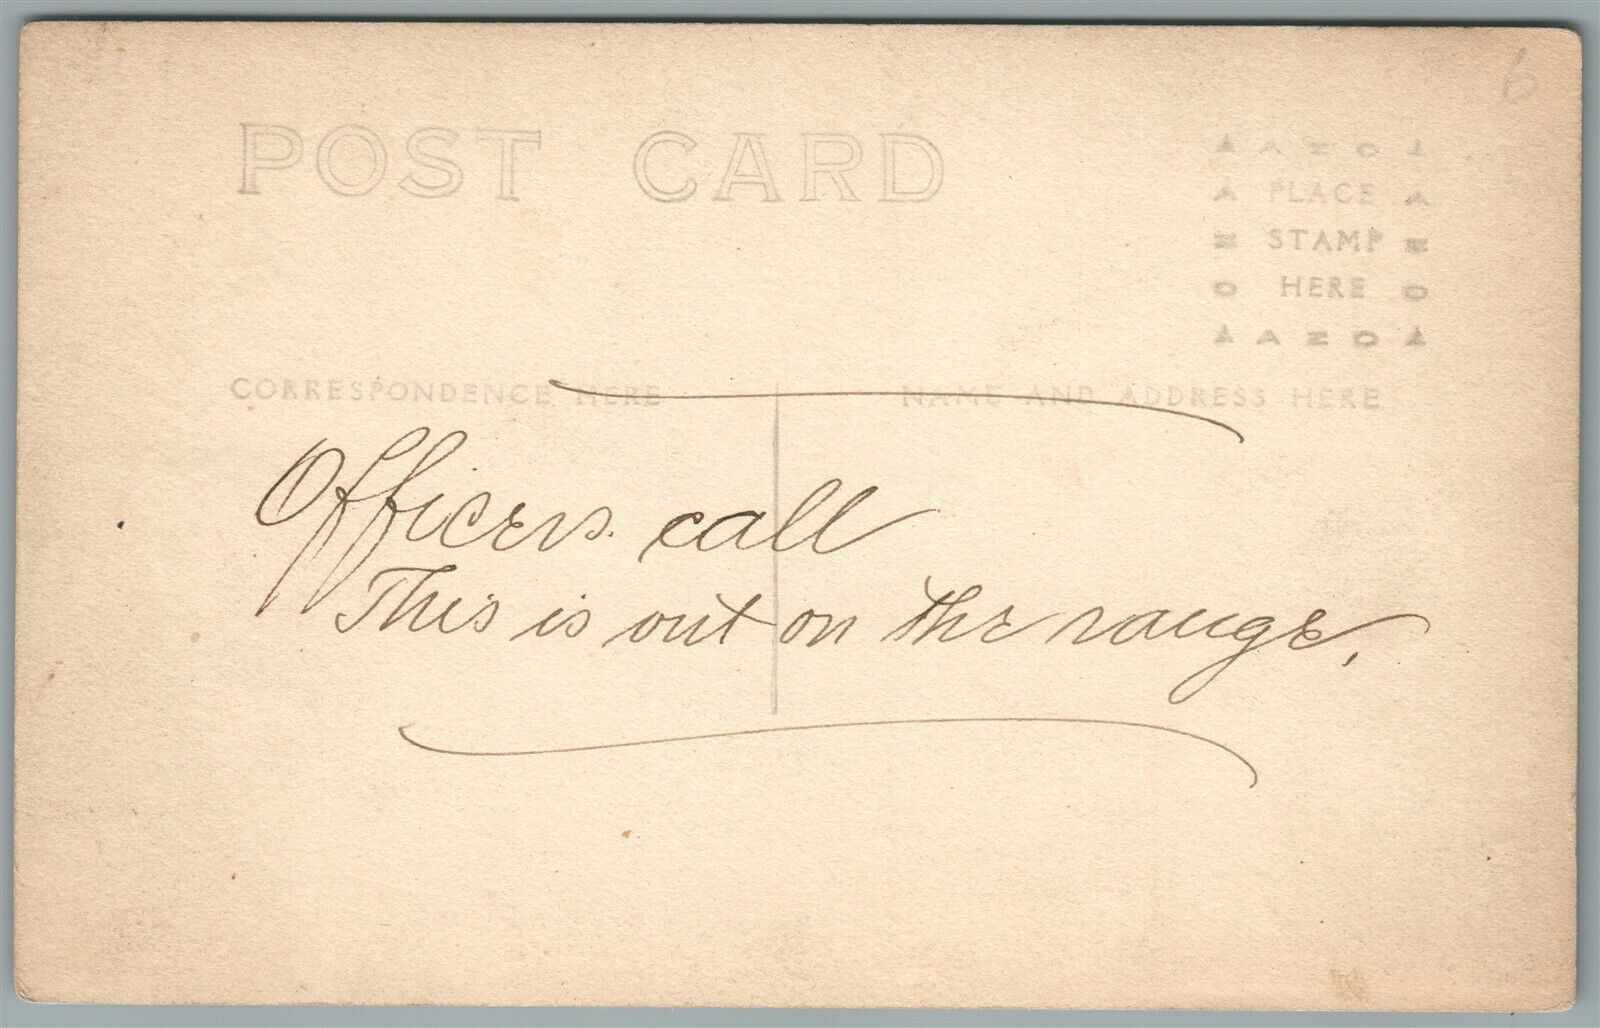 6
POST CARD
▲ A Z O ▲
A PLACE A
Z STAMP Z
O HERE O
▲ A Z O ▲
CORRESPONDENCE HERE
NAME AND ADDRESS HERE
Officers. call
This is out on the range.